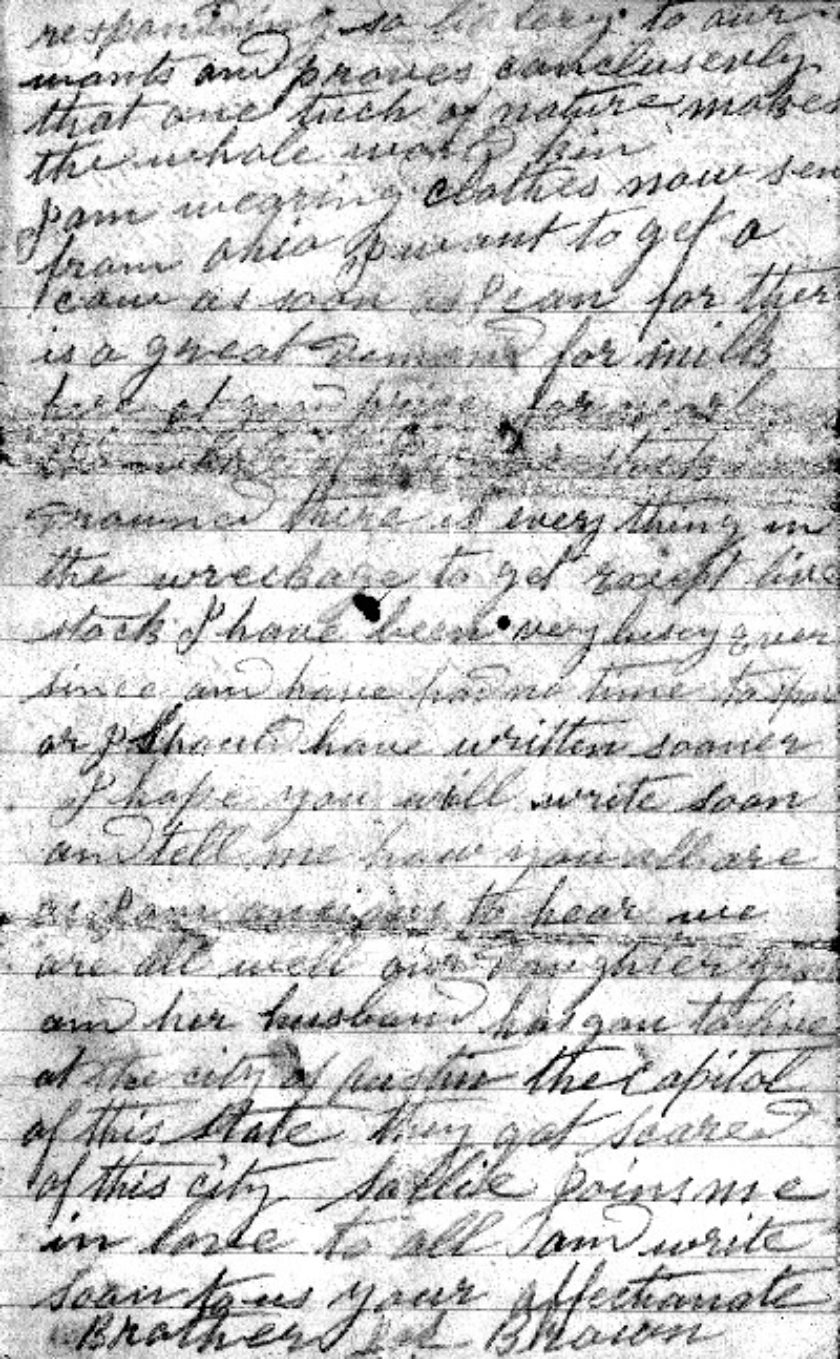 responding so
to our
wants and proves conclusevly
that one tuch of nature make
the whole world kin
I am wearing clothes now sen
from ohio I want to get a
cow as soon as I can for ther
is a great demand for milk
here at
for nearly
the whole of
stock
drouned there is every thing in
the wreckage to get except live
stock I have been very busy ever
since and have had no time to
or I Should have written sooner
I hope you will write soon
and tell me how you all are
as I am anxious to hear we
are all well our Daughter
and her husband has gon to live
at the city of austin the capitol
of this State they got scared
of this city Sallie joins me
in love to all and write
soon to us your affectianate
Brother Brown